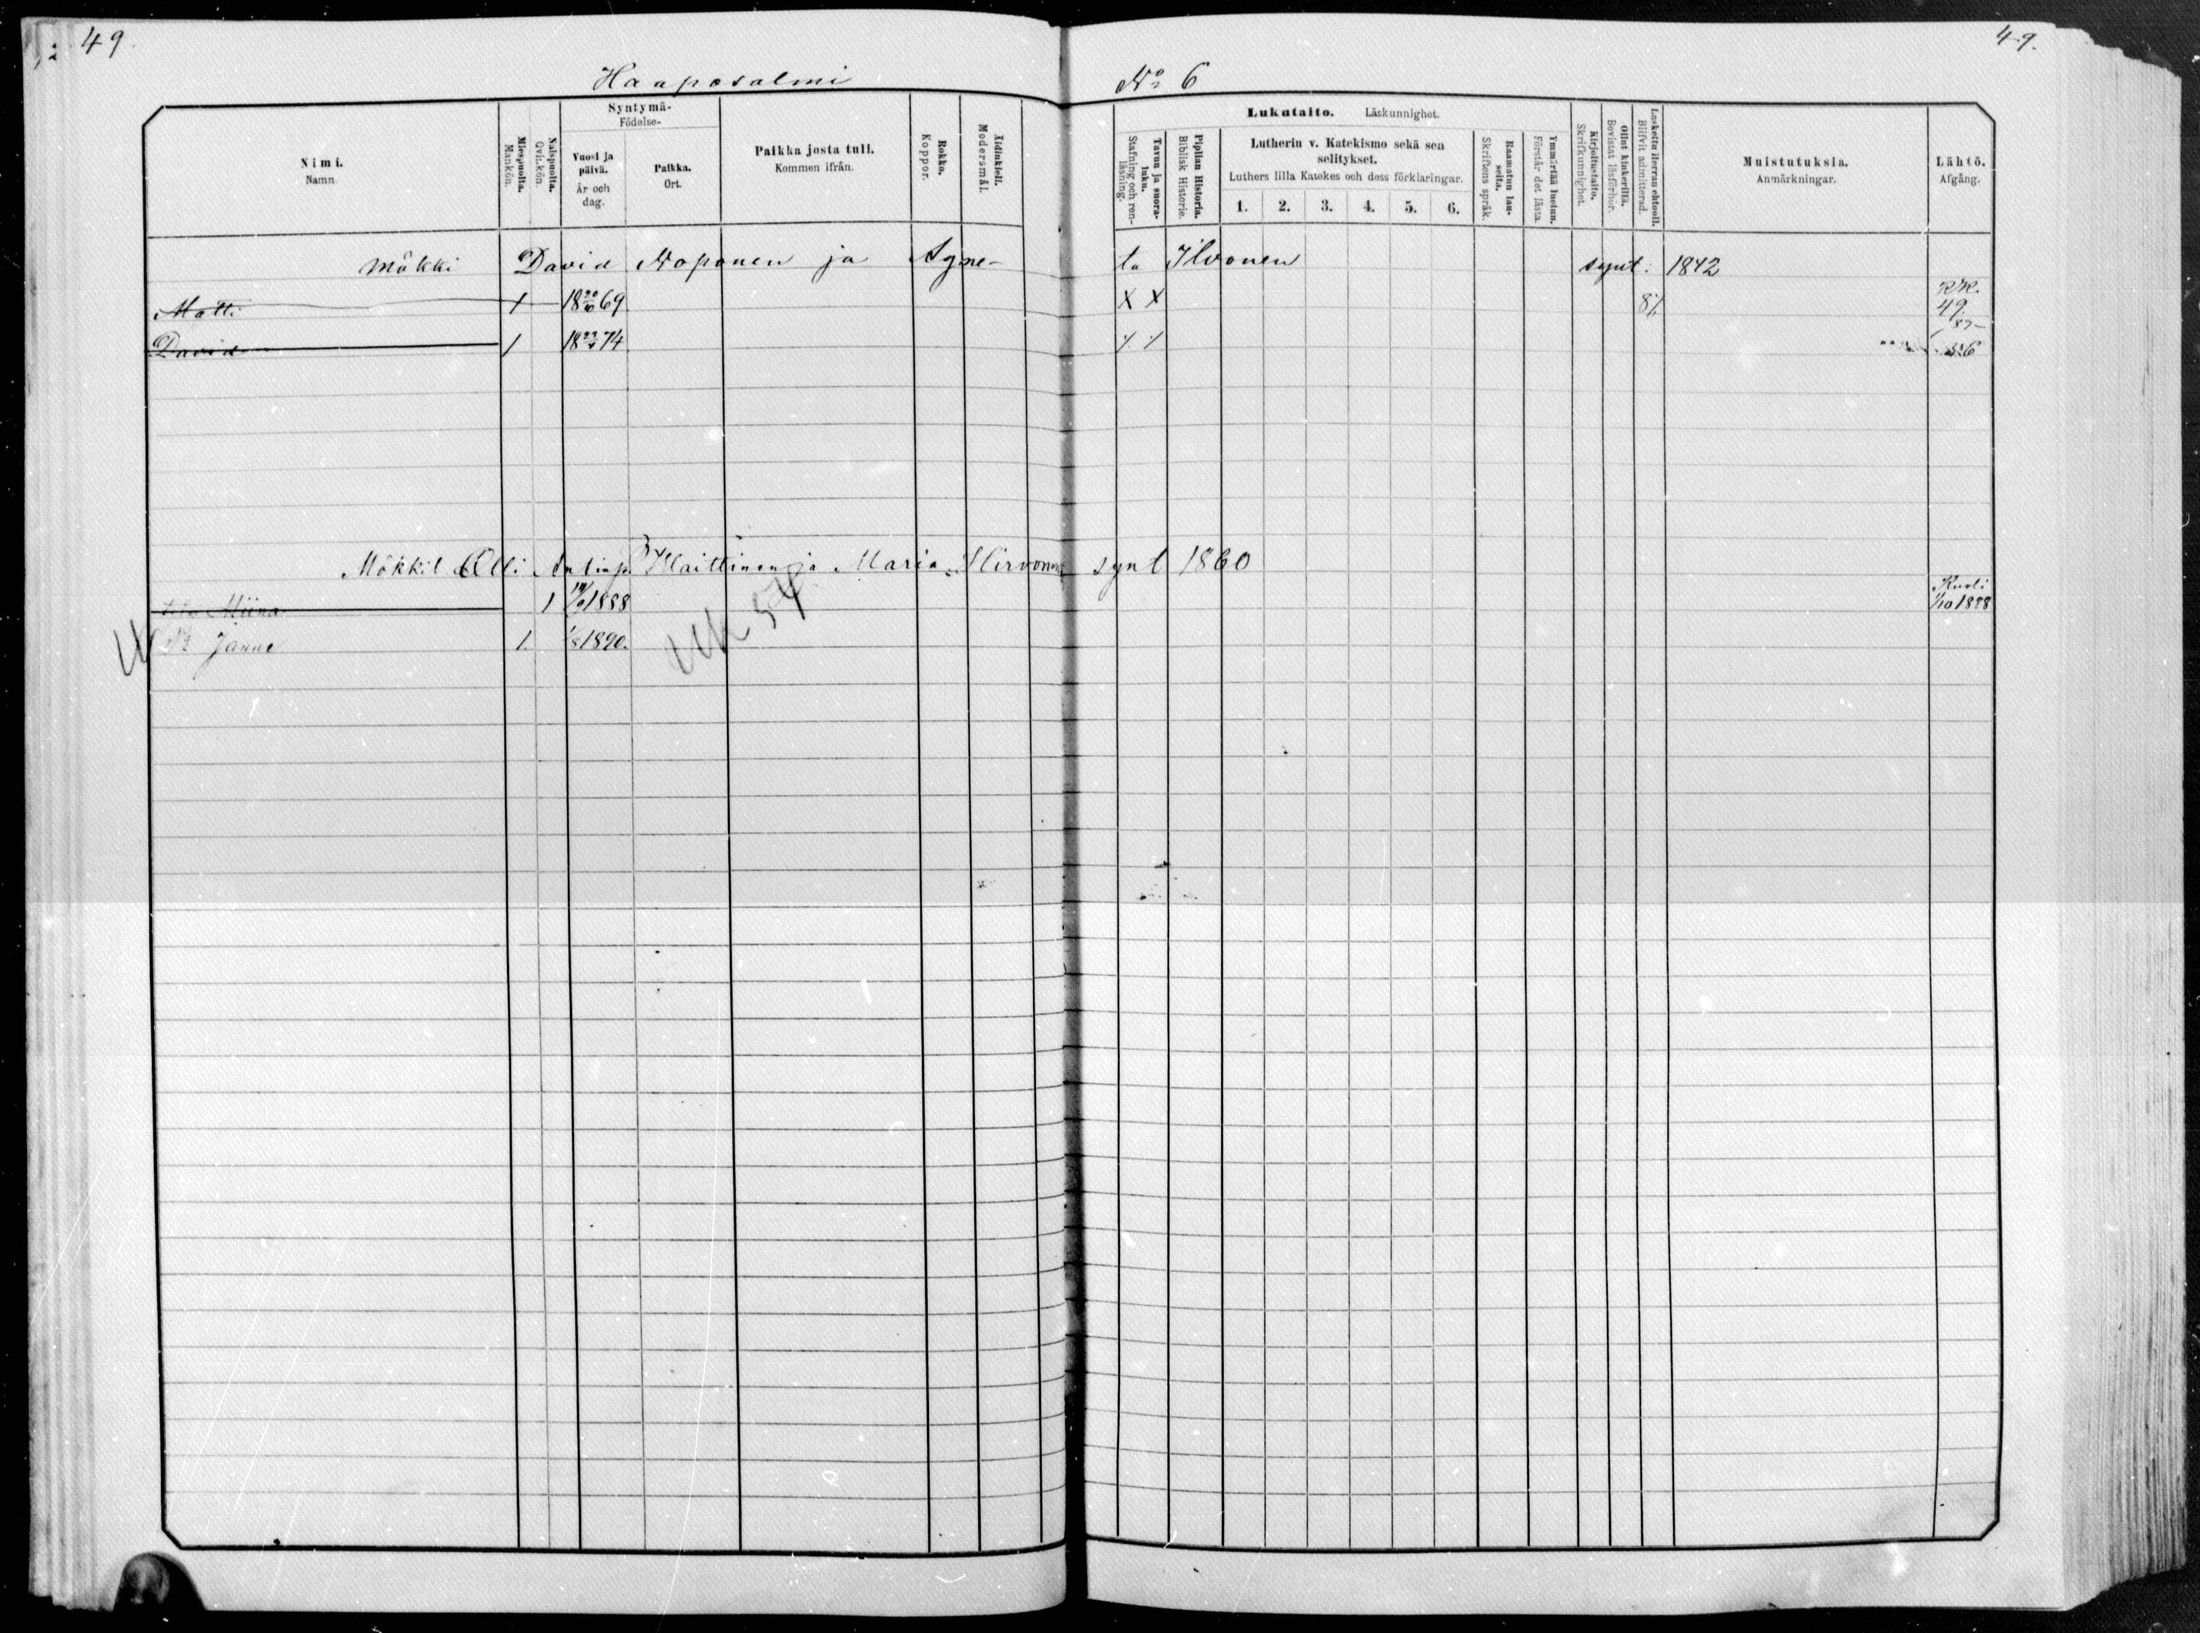 49.
49.
Haaposalmi
No 6
Nimi.
Namn.
Miespuolta.
Mankön.
Naispuolta.
Qvinkön.
Syntymä-
Födelse-
Vuosi ja päivä.
År och dag.
Paikka.
Ort.
Paikka josta tuli.
Kommen ifrån.
Rokko.
Koppor.
Äidinkieli.
Modersmål.
Tavuu ja suora-luku.
Stafning och ren-läsning.
Piplian Historia.
Biblisk Historie.
Lukutaito. Läskunnighet.
Lutherin v. Katekismo sekä sen
selitykset.
Luthers lilla Katekes och dess förklaringar.
1. 2. 3. 4. 5. 6.
Raamatun lau-seita.
Skriftens språk.
Ymmärtää luetun.
Förstår det lästa.
Kirjoitustaito.
Skrifkunnighet.
Ollut kinkerillä.
Bevistat läsförhör.
Laskettu Herran ehtooll.
Blifvit admitterad.
Muistutuksia.
Anmärkningar.
Lähtö.
Afgång.
Mökki David Noponen ja Agne-
ta Ilvonen synt: 1842
Matti 1 18 20/10 69 X X 8% RK. 49. 87
David 1 18 74
Mökkil Olli Antinp. Haittinen ja Maria Hirvonen synt 1860
Miina 1 1888 Kuoli 1/10 1888
Janne 1. 1/8 1890.
54